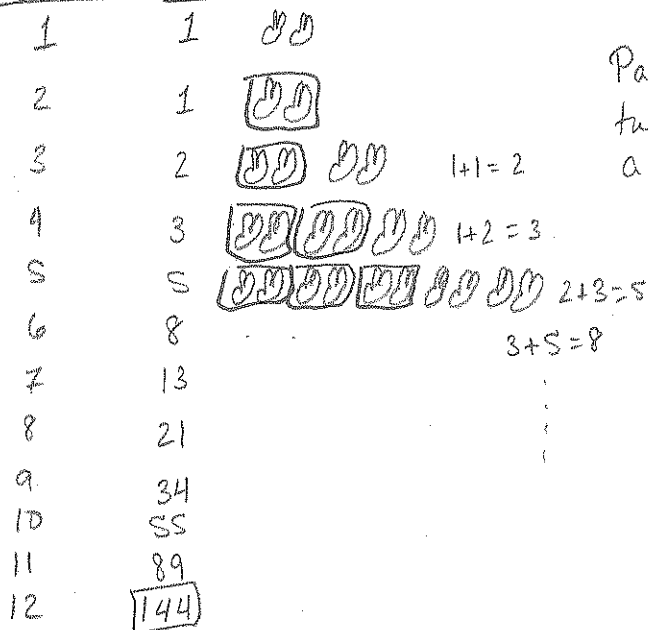 1 1
Pa
2 1
tu
3 2 1+1=2 a
4 3 1+2=3
5 5 2+3=5
6 8 . . 3+5=8
7 13
8 21
9. 34
10 55
11 89
12 144